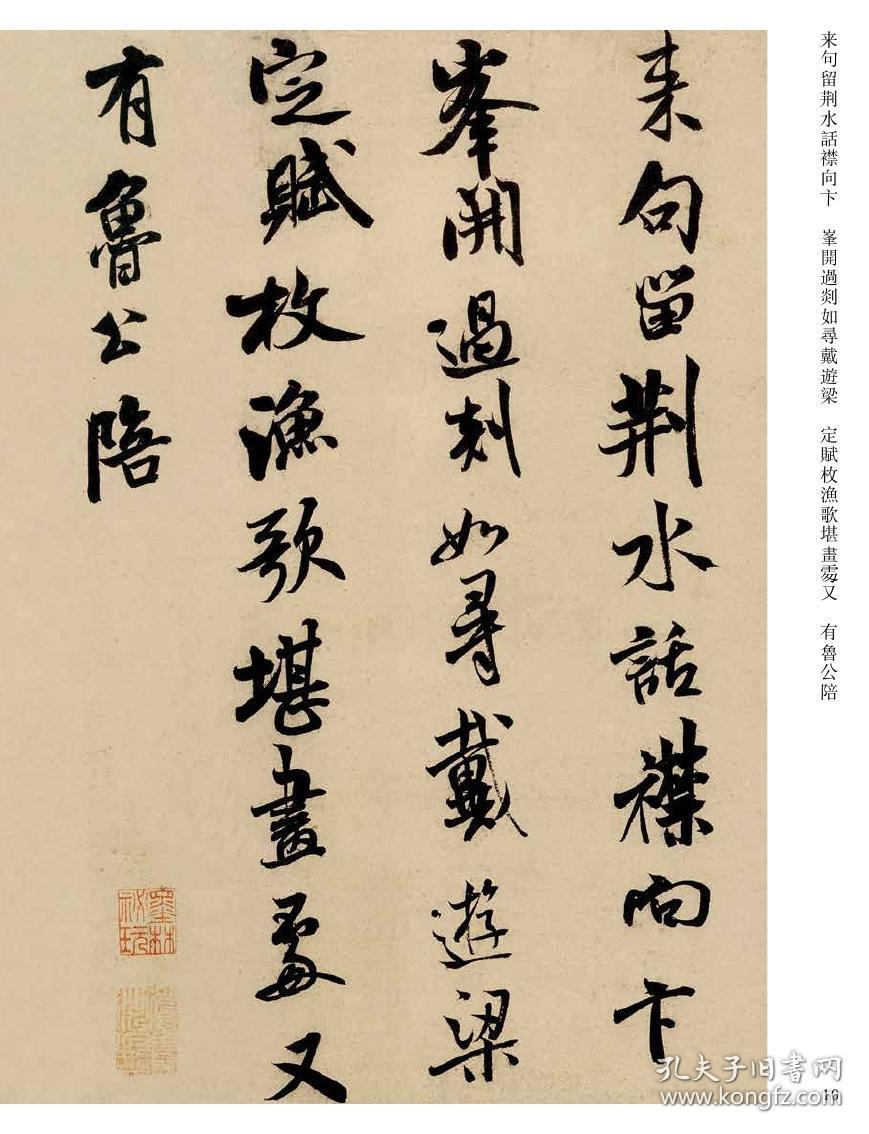 来句留荆水話襟向卞　峯開過剡如尋戴遊梁　定賦枚漁歌堪畫䖏又　有魯公陪
来句留荆水話襟向卞
峯開過剡如尋戴遊梁
定賦枚漁歌堪畫䖏又
有魯公陪
墨林秘玩
孔夫子旧书网
www.kongfz.com
10